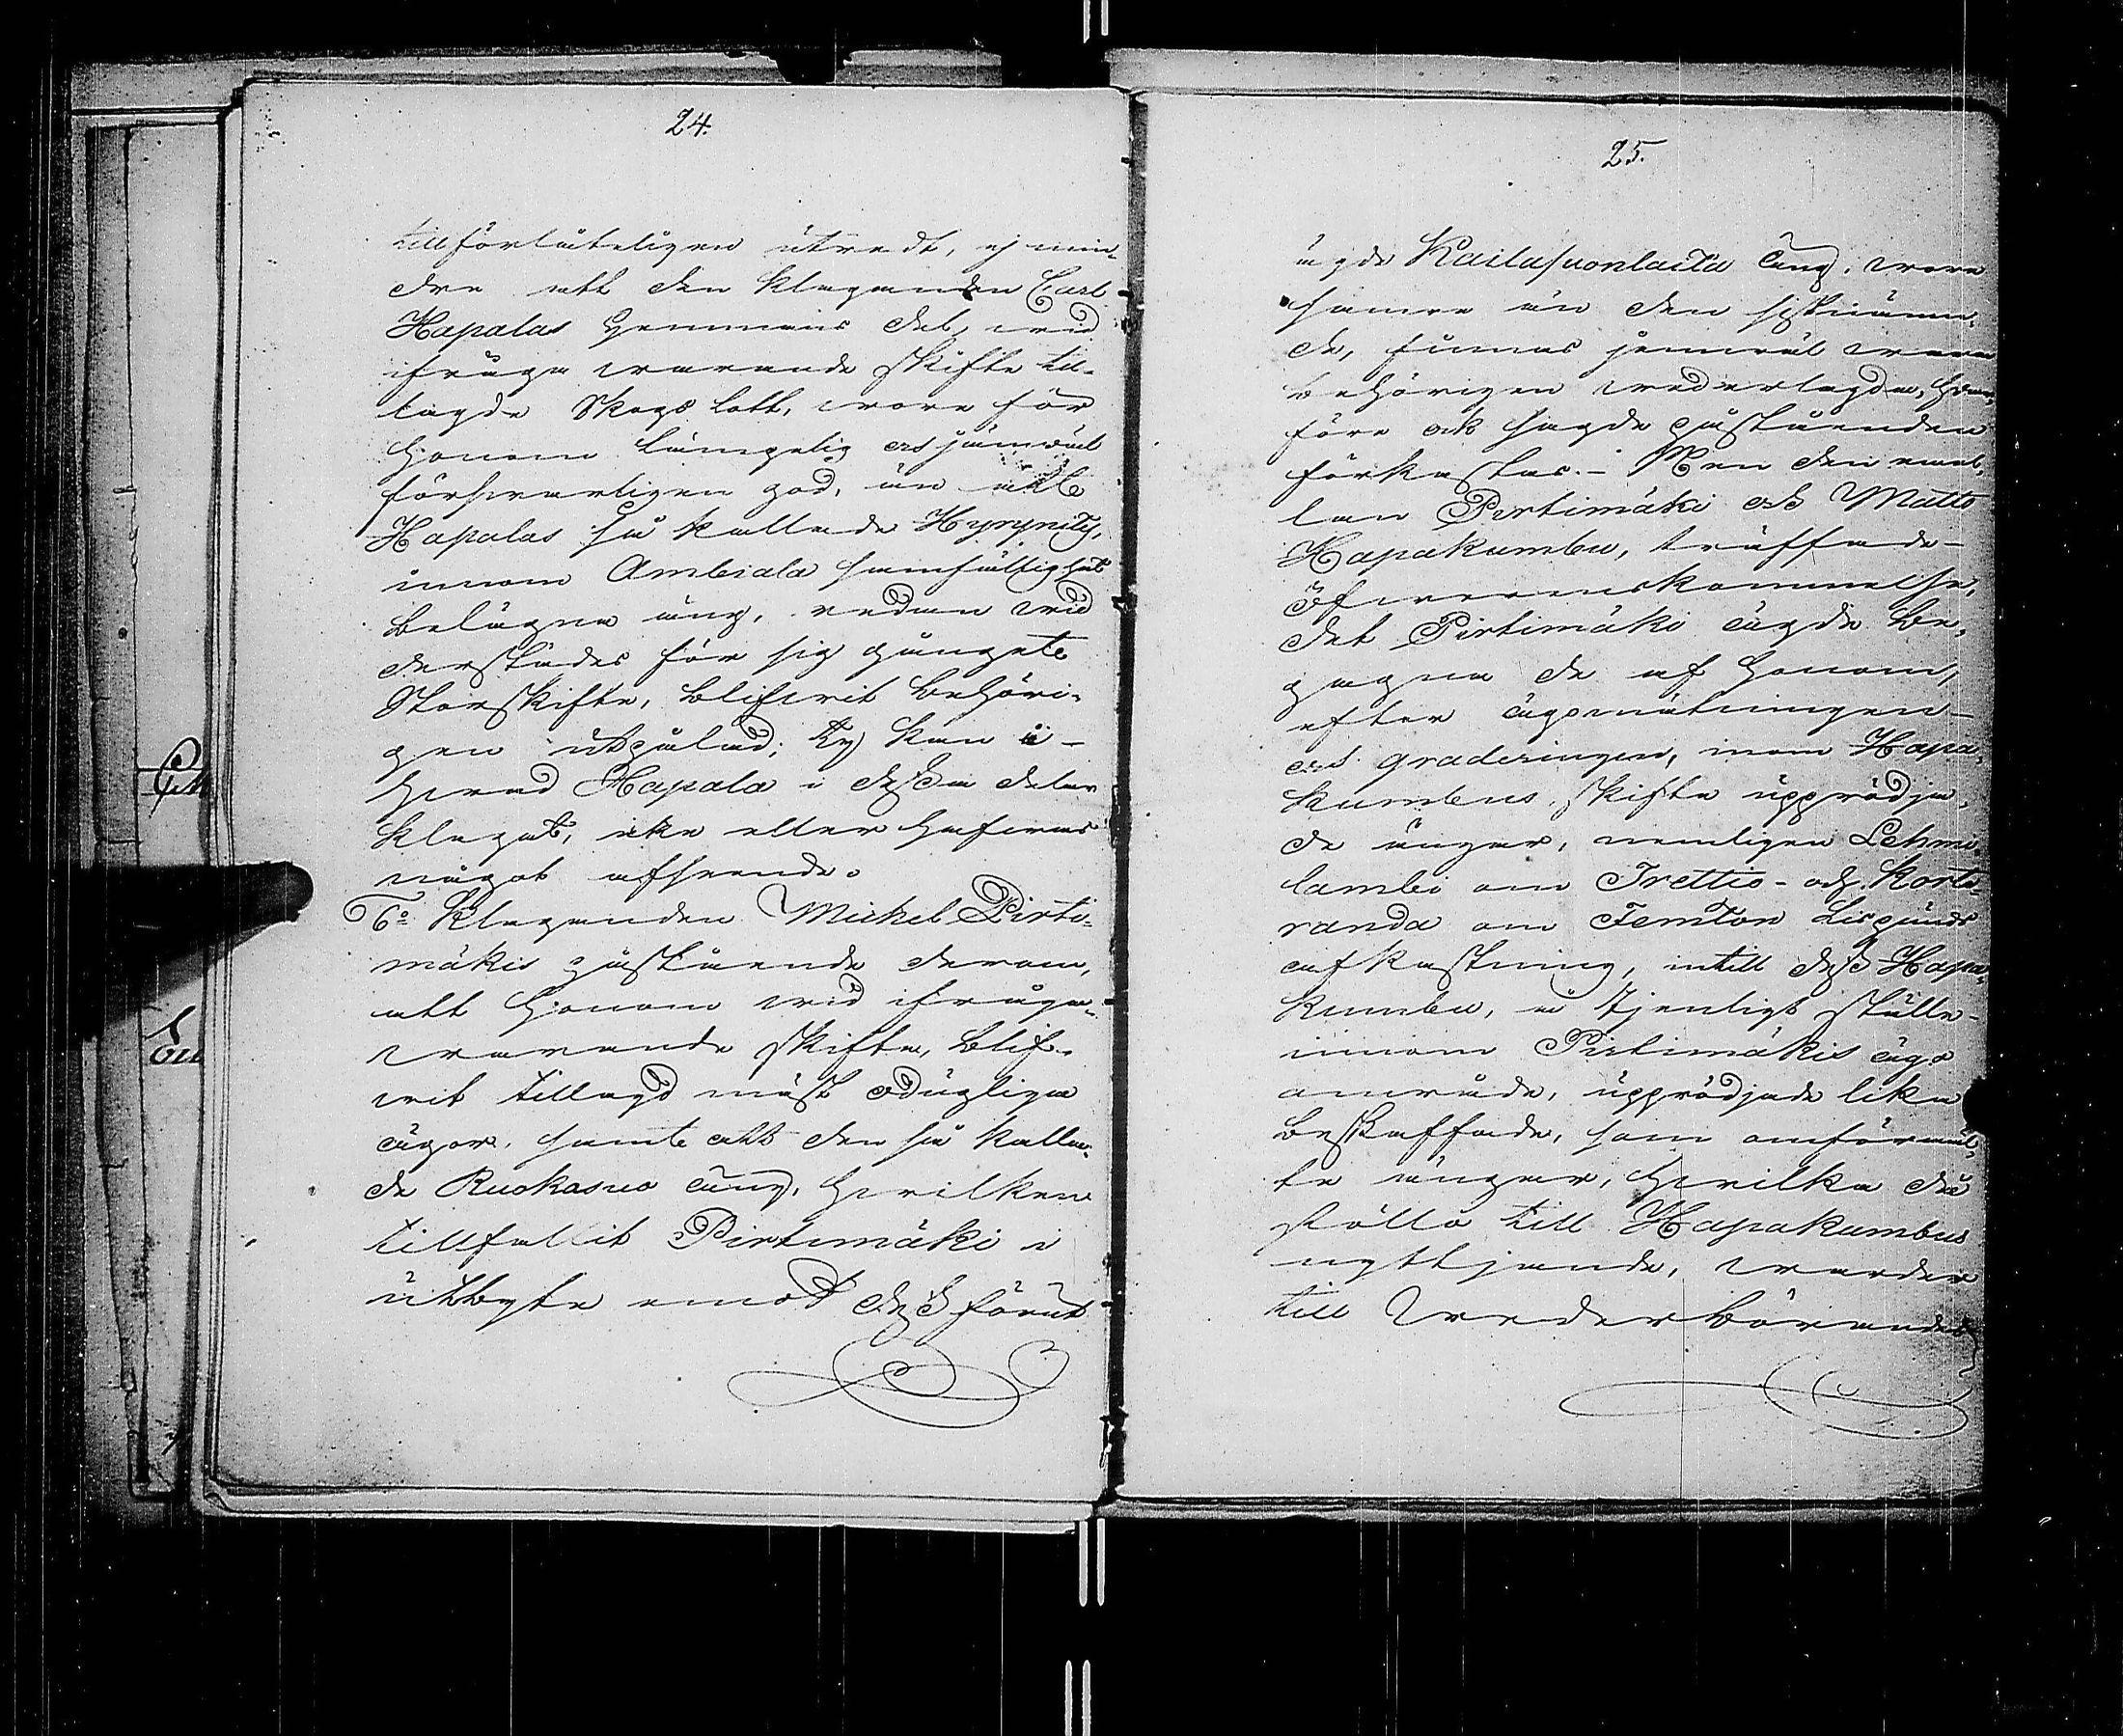 24.
tillförlåteligen utredt, ej min-
dre att den klaganden Carl
Hapalas hemmans del, vid
ifråga varande skifte til-
lagde Skogs lott, vore för
honom lämpelig och jämväl
försvarligen god, än att
Hapalas så kallade Hyrynity,
innom Ambiala samfällighet
belägne äng, redan vid
derstädes för sig gångete
Storskifte, blifvit behöri-
gen utpålad; ty kan ä-
hvad Hapala i dessa delar
klagat, icke eller hafvas
något afseende.
6º Klaganden Michel Pirti-
mäkis påstående derom,
att honom vid ifråga-
varande skifte, blif-
vit tillagd mäst oduglige
ägor, samt att den så kalla-
de Ruokosuo äng, hvilken
tillfallit Pirtimäki i
utbyte emot dess förut
25.
ägde Kailasuonlaita äng, vore
sämre än den sistnämn-
de, finnas jemväl vara
behörigen vederlagde, hvar-
före ock sagde påståenden
förkastas. - Men den emel-
lan Pirtimäki och Matts
Hapakumbu, träffade-
öfverenskommelse,
det Pirtimäki ägde be-
gagna de af honom,
efter ägomätningen-
och graderingen, inom Hapa-
kumbus skifte upprödja-
de ängar, nemligen Lehmi-
lambi om Trettio- och Korte-
randa om Femton Lispunds
afkastning, intill dess Hapa-
kumbu, å tjenligt ställe-
innom Pirtimäkis ägo
område, upprödjade lika
beskaffade, som omförmäl-
te ängar, hvilka då
skolla till Hapakumbus
nyttjande, varder
till Vederbörandes